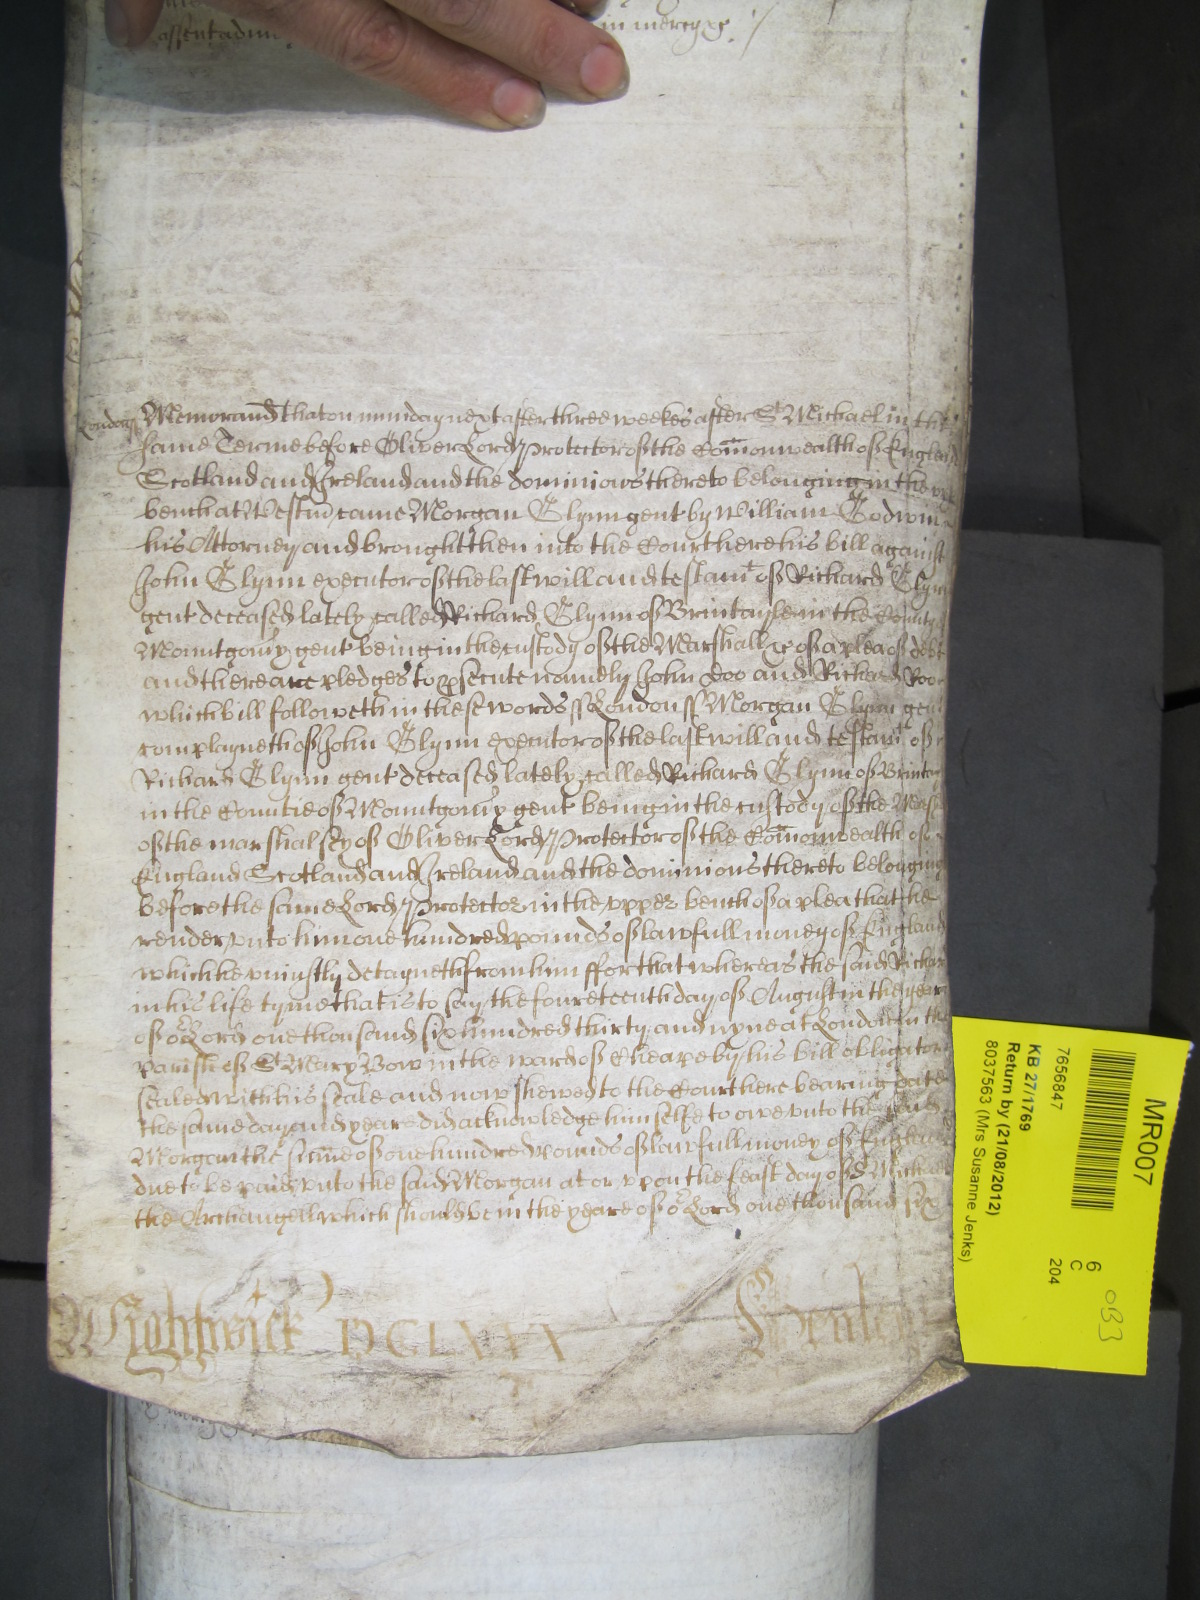 assent adiu in mercye &c
London ss Memorand that on munday next after three weekes after St Michael in this
same Terme before Oliver Lord Protector of the Comonwealth of England
Scotland and Ireland and the dominions thereto belonging in the upper
bench at Westm came Morgan Glynn gent by William Godwin
his Attorney and brought then into the Court here his bill against
John Glynn executor of the last will and testamt of Richard Glynn
gent deceased lately called Richard Glynn of Brintayle in the County of
Mountgomy gent being in the custody of the Marshall &c of a plea of debt
and there are pledges to psecute namely John Doo and Richard Roo
which bill followeth in these words ss London ss Morgan Glynn gent
complayneth of John Glynn executor of the last will and testamt of
Richard Glynn gent deceased lately called Richard Glynn of
in the Countie of Mountgomy gent being in the custody of the
of the marshalsey of Oliver Lord Protector of the Comonwealth of
England Scotland and Ireland and the dominions thereto belonging
before the same Lord Protector in the upper bench of a plea that he
render unto him one hundred pounds of lawfull money of England
which he uniustly detayneth from him ffor that whereas the said Richard
in his life tyme that is to say the foureteenth day of August in the yeare
of or Lord one thousand six hundred thirty and nyne at London in the
parish of St Mary Bow in the ward of Cheape by his bill obligatory
sealed with his seale and now shewed to the Court here bearing date
the same day and yeare did acknowledge himselfe to owe unto the said
Morgan the sume of one hundred pounds of lawfull money of England
due to be paid unto the said Morgan at or upon the feast day of St Michael
the Archangell which should be in the yeare of or Lord one thousand six
Wightwick DCLXXX Henley
MR007
7656847
KB 27/1769
Return by (21/08/2012)
8037563 (Mrs Susanne Jenks)
6
C
204
OB3